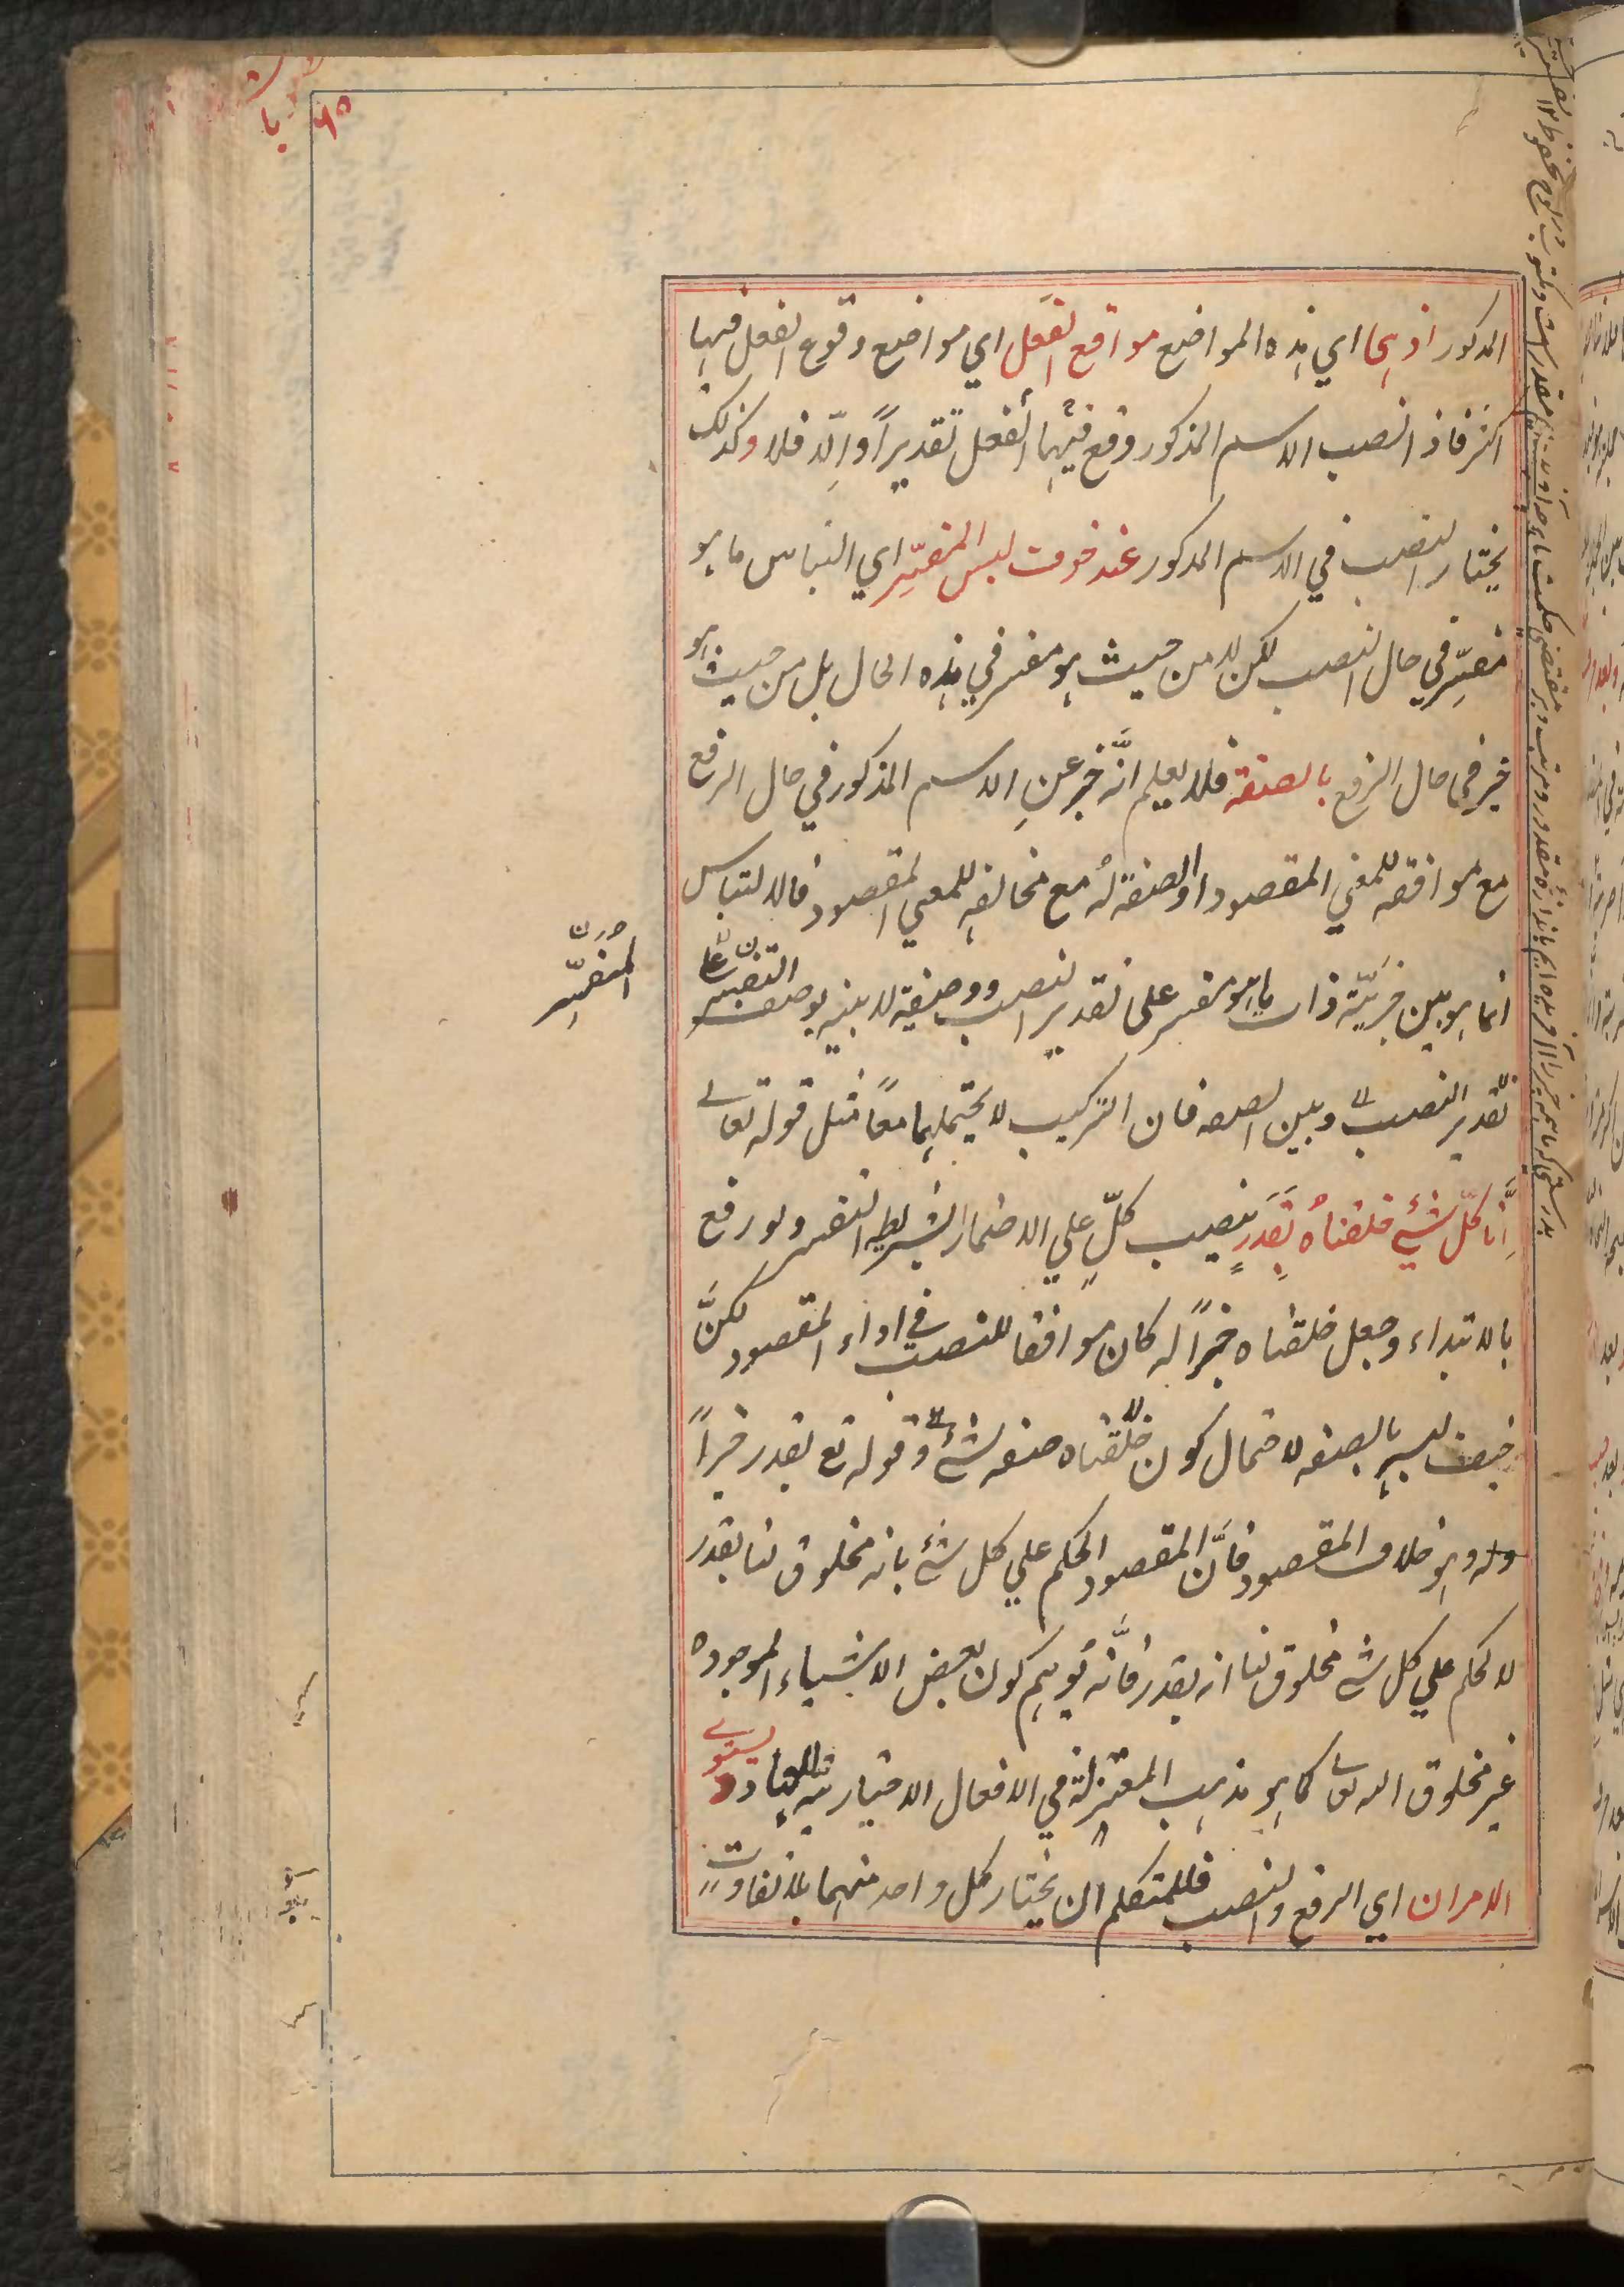 المذكور اذ هي اي هذه المواضع مواقع الفعل اي مواضع وقوع الفعل فيها
اكثر فاذا نصب الاسم المذكور وقع فيها الفعل تقديراً والّا فلا وكذلك
يختار النصب في الاسم المذكور عند خوف لبس المفسِّر اي التباس ما هو
مفسِّر في حال النصب لكن لا من حيث هو مفسر في هذه الحال بل من حيث هو
خبر في حال الرفع بالصفة فلا يعلم انَّه خبر عن الاسم المذكور في حال الرفع
مع موافقته للمعنى المقصود او صفة له مع مخالفته للمعنى المقصود فالالتباس
انما هو بين خبريّة ذات ما هو مفسر على تقدير النصب ووصفيته لا بينه بوصف التفسير على
المفسِّر
تقدير النصب وبين الصفة فان التركيب لا يحتملهما معاً مثل قوله تعالى
اِنَّا كلَّ شيءٍ خلقناهُ بقَدَرٍ بنصب كلّ على الاضمار بشريطة التفسير ولو رفع
بالابتداء وجعل خلقناه خبراً له كان موافقا للنصب في اداء المقصود لكنَّ
خيف لبسه بالصفة لاحتمال كون خلقناه صفة لشيء وقوله تع بقدر خبراً
وله وهو خلاف المقصود فانَّ المقصود الحكم على كل شيء بانه مخلوق لنا بقدر
لا الحكم على كل شي مخلوق لنا انه بقدر فانَّه يوهم كون بعض الاشياء الموجودة
غير مخلوق الله تعالى كما هو مذهب المعتزلة في الافعال الاختيارية للعباد ويستوي
الامران اي الرفع والنصب فللمتكلم ان يختار كل واحد منهما بلا تفاوت